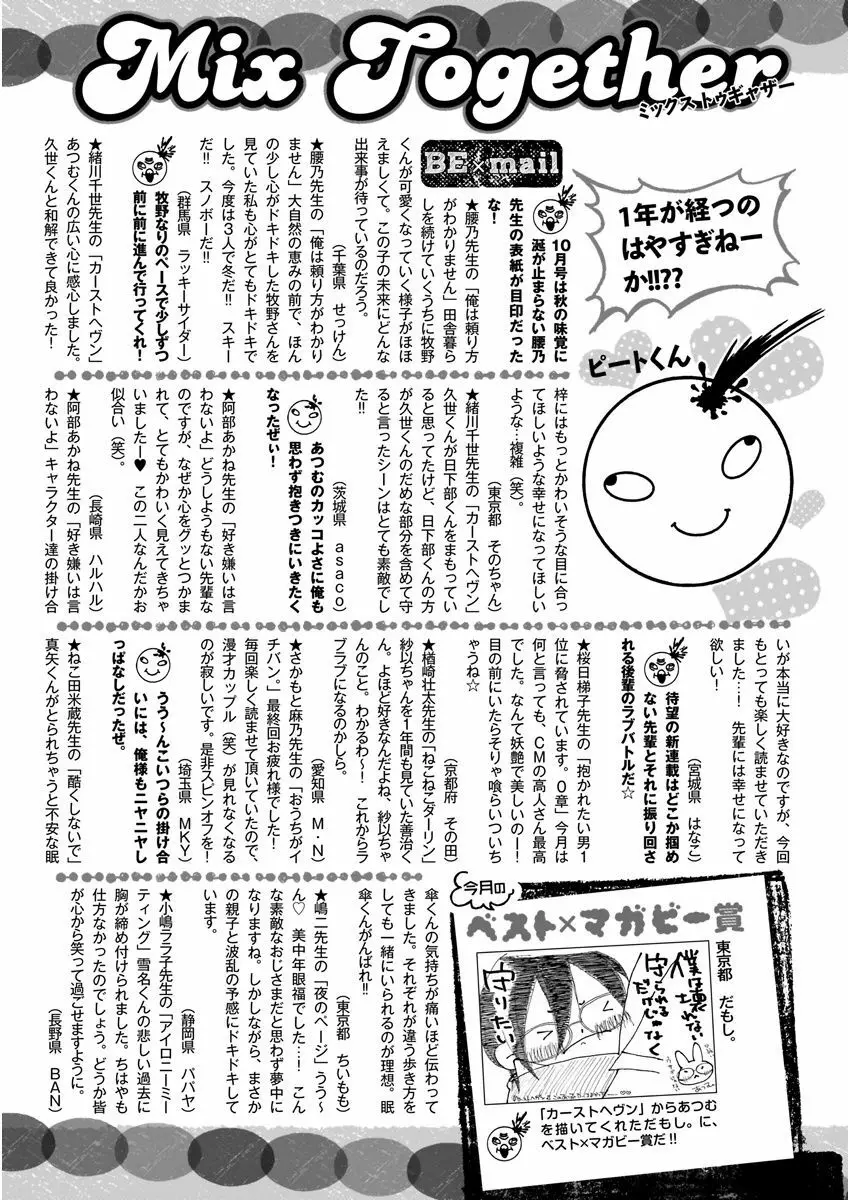 Mix Together
ミックス トゥギャザー
1年が経つの
はやすぎねー
か!!??
ピートくん
BE×mail
10月号は秋の味覚に
涎が止まらない腰乃
先生の表紙が目印だった
な!
★腰乃先生の「俺は頼り方
がわかりません」田舎暮ら
しを続けていくうちに牧野
くんが可愛くなっていく様子がほほ
えましくて。この子の未来にどんな
出来事が待っているのだろう。
(千葉県 せっけん)
★腰乃先生の「俺は頼り方がわかり
ません」大自然の恵みの前で、ほん
の少し心がドキドキした牧野さんを
見ていた私も心がとてもドキドキで
した。今度は3人で冬だ!! スキー
だ!! スノボーだ!!
(群馬県 ラッキーサイダー)
牧野なりのペースで少しずつ
前に前に進んで行ってくれ!
★緒川千世先生の「カーストヘヴン」
あつむくんの広い心に感心しました。
久世くんと和解できて良かった!
梓にはもっとかわいそうな目に合っ
てほしいような幸せになってほしい
ような…複雑(笑)。
(東京都 そのちゃん)
★緒川千世先生の「カーストヘヴン」
久世くんが日下部くんをまもってい
ると思ってたけど、日下部くんの方
が久世くんのだめな部分を含めて守
ると言ったシーンはとても素敵でし
た!!
(茨城県 asaco)
あつむのカッコよさに俺も
思わず抱きつきにいきたく
なったぜぃ!
★阿部あかね先生の「好き嫌いは言
わないよ」どうしようもない先輩な
のですが、なぜか心をグッとつかま
れて、とてもかわいく見えてきちゃ
いましたー♥ この二人なんだかお
似合い(笑)。
(長崎県 ハルハル)
★阿部あかね先生の「好き嫌いは言
わないよ」キャラクター達の掛け合
いが本当に大好きなのですが、今回
もとっても楽しく読ませていただき
ました…! 先輩には幸せになって
欲しい!
(宮城県 はなこ)
待望の新連載はどこか掴め
ない先輩とそれに振り回さ
れる後輩のラブバトルだ☆
★桜日梯子先生の「抱かれたい男1
位に脅されています。0章」今月は
何と言っても、CMの高人さん最高
でした。なんて妖艶で美しいのー!
目の前にいたらそりゃ喰らいついち
ゃうね☆
(京都府 その田)
★楢崎壮太先生の「ねこねこダーリン」
紗以ちゃんを1年間も見ていた善治く
ん。よほど好きなんだよね、紗以ちゃ
んのこと。わかるわ〜! これからラ
ブラブになるのかしら。
(愛知県 M・N)
★さかもと麻乃先生の「おうちがイ
チバン。」最終回お疲れ様でした!
毎回楽しく読ませて頂いていたので、
漫才カップル(笑)が見れなくなる
のが寂しいです。是非スピンオフを!
(埼玉県 MKY)
うう〜んこいつらの掛け合
いには、俺様もニヤニヤし
っぱなしだったぜ。
★ねこ田米蔵先生の「酷くしないで」
真矢くんがとられちゃうと不安な眠
傘くんの気持ちが痛いほど伝わって
きました。それぞれが違う歩き方を
しても一緒にいられるのが理想。眠
傘くんがんばれ!!
(東京都 ちいもも)
★嶋二先生の「夜のページ」うう〜
ん♡ 美中年眼福でした…! こん
な素敵なおじさまだと思わず夢中に
なりますね。しかしながら、まさか
の親子と波乱の予感にドキドキして
います。
(静岡県 ババヤ)
★小嶋ララ子先生の「アイロニーミー
ティング」雪名くんの悲しい過去に
胸が締め付けられました。ちはやも
仕方なかったのでしょう。どうか皆
が心から笑って過ごせますように。
(長野県 BAN)
今月の
ベスト×マガビー賞
東京都 だもし。
僕は壊れない
守られる
だけじゃなく
守りたい
「カーストヘヴン」からあつむ
を描いてくれただもし。に、
ベスト×マガビー賞だ!!